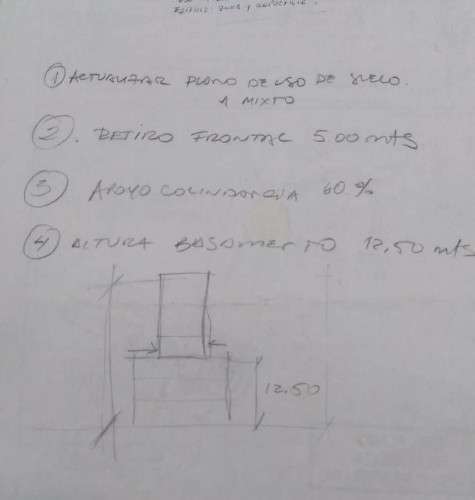 ① ACTUALIZAR PLANO DE USO DE SUELO.
A MIXTO
②. RETIRO FRONTAL 5.00 mts
③ APOYO COLINDANCIA 60 %
④ ALTURA BASAMENTO 12,50 mts
12.50